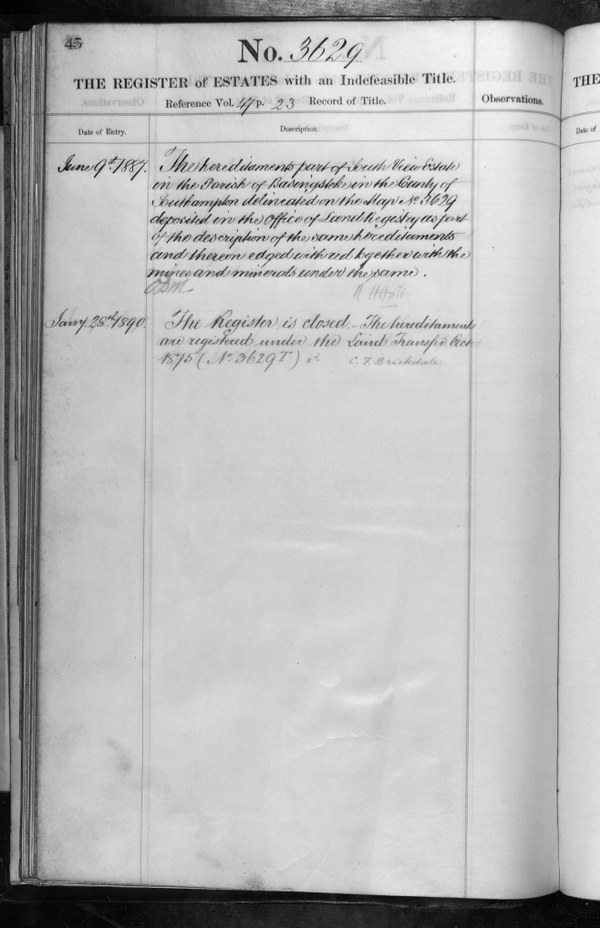 45
No. 3629
THE REGISTER of ESTATES with an Indefeasible Title.
Reference Vol. 47 p. 23 Record of Title.
Observations.
Date of Entry.
Description.
June 9th 1887.
The hereditaments part of South View Estate
in the Parish of Basingstoke in the County of
Southampton delineated on the Map No 3629
deposited in the Office of Land Registry as part
of the description of the same hereditaments
and thereon edged with red together with the
mines and minerals under the same.
Jany. 25th 1890.
The Register is closed. The hereditaments
are registered under the Land Transfer Act
1875 (No 3629 T)
C. F. Brickdale
THE
Date of